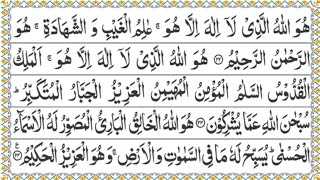 هُوَ اللهُ الَّذِیْ لَاۤ اِلٰهَ اِلَّا هُوَ ۚ عٰلِمُ الْغَیْبِ وَ الشَّهَادَةِ ۚ هُوَ
الرَّحْمٰنُ الرَّحِیْمُ ﴿۲۲﴾ هُوَ اللهُ الَّذِیْ لَاۤ اِلٰهَ اِلَّا هُوَ ۚ اَلْمَلِكُ
الْقُدُّوْسُ السَّلٰمُ الْمُؤْمِنُ الْمُهَیْمِنُ الْعَزِیْزُ الْجَبَّارُ الْمُتَكَبِّرُ ؕ
سُبْحٰنَ اللهِ عَمَّا یُشْرِكُوْنَ ﴿۲۳﴾ هُوَ اللهُ الْخَالِقُ الْبَارِئُ الْمُصَوِّرُ لَهُ الْاَسْمَآءُ
الْحُسْنٰی ؕ یُسَبِّحُ لَهٗ مَا فِی السَّمٰوٰتِ وَ الْاَرْضِ ۚ وَ هُوَ الْعَزِیْزُ الْحَكِیْمُ ﴿۲۴﴾